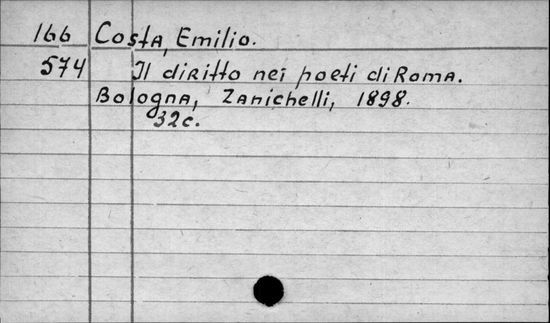 166 Costa, Emilio.
574 Il diritto nei poeti di Roma.
Bologna, Zanichelli, 1898.
32c.